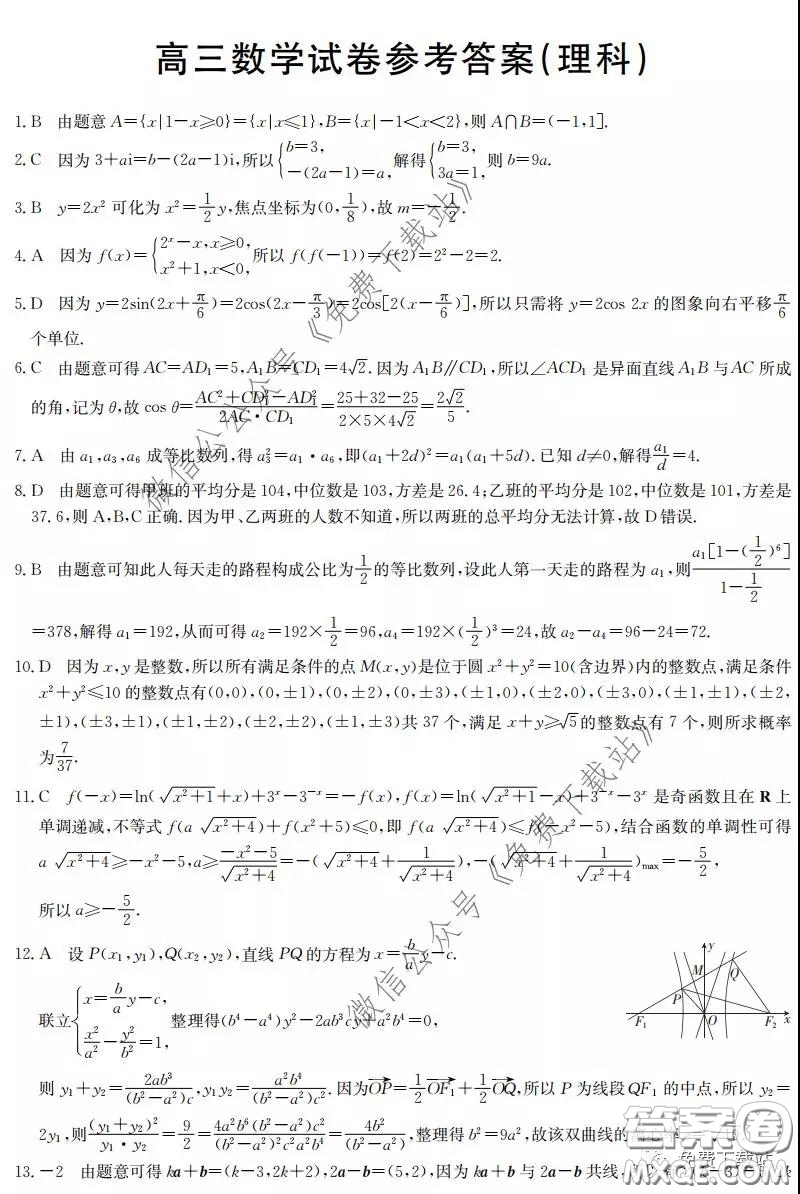 高三数学试卷参考答案(理科)
1. B 由题意 A={x|1-x≥0}={x|x≤1},B={x|-1<x<2},则 A∩B=(-1,1].
2. C 因为 3+ai=b-(2a-1)i,所以{b=3, -(2a-1)=a, 解得{b=3, 3a=1, 则 b=9a.
3. B y=2x² 可化为 x²=1/2 y,焦点坐标为(0,1/8),故 m=-1/2.
4. A 因为 f(x)={2ˣ-x,x≥0, x²+1,x<0, 所以 f(f(-1))=f(2)=2²-2=2.
5. D 因为 y=2sin(2x+π/6)=2cos(2x-π/3)=2cos[2(x-π/6)],所以只需将 y=2cos 2x 的图象向右平移π/6
个单位.
6. C 由题意可得 AC=AD₁=5,A₁B=CD₁=4√2.因为 A₁B∥CD₁,所以∠ACD₁ 是异面直线 A₁B 与 AC 所成
的角,记为 θ,故 cos θ=(AC²+CD₁²-AD₁²)/(2AC·CD₁)=(25+32-25)/(2×5×4√2)=2√2/5.
7. A 由 a₁,a₃,a₆ 成等比数列,得 a₃²=a₁·a₆,即(a₁+2d)²=a₁(a₁+5d).已知 d≠0,解得a₁/d=4.
8. D 由题意可得甲班的平均分是 104,中位数是 103,方差是 26.4;乙班的平均分是 102,中位数是 101,方差是
37.6,则 A,B,C 正确.因为甲、乙两班的人数不知道,所以两班的总平均分无法计算,故 D 错误.
9. B 由题意可知此人每天走的路程构成公比为1/2的等比数列,设此人第一天走的路程为 a₁,则a₁[1-(1/2)⁶]/(1-1/2)
=378,解得 a₁=192,从而可得 a₂=192×1/2=96,a₄=192×(1/2)³=24,故 a₂-a₄=96-24=72.
10. D 因为 x,y 是整数,所以所有满足条件的点 M(x,y)是位于圆 x²+y²=10(含边界)内的整数点,满足条件
x²+y²≤10 的整数点有(0,0),(0,±1),(0,±2),(0,±3),(±1,0),(±2,0),(±3,0),(±1,±1),(±2,
±1),(±3,±1),(±1,±2),(±2,±2),(±1,±3)共 37 个,满足 x+y≥√5的整数点有 7 个,则所求概率
为7/37.
11. C f(-x)=ln(√(x²+1)+x)+3ˣ-3⁻ˣ=-f(x),f(x)=ln(√(x²+1)-x)+3⁻ˣ-3ˣ 是奇函数且在 R 上
单调递减,不等式 f(a √(x²+4))+f(x²+5)≤0,即 f(a √(x²+4))≤f(-x²-5),结合函数的单调性可得
a √(x²+4)≥-x²-5,a≥(-x²-5)/√(x²+4)=-(√(x²+4)+1/√(x²+4)),-(√(x²+4)+1/√(x²+4))max=-5/2,
所以 a≥-5/2.
12. A 设 P(x₁,y₁),Q(x₂,y₂),直线 PQ 的方程为 x=b/a y-c.
联立{x=b/a y-c, x²/a²-y²/b²=1, 整理得(b⁴-a⁴)y²-2ab³cy+a²b⁴=0,
y M Q P F₁ O F₂ x
则 y₁+y₂=2ab³/((b²-a²)c),y₁y₂=a²b⁴/((b²-a²)c²).因为OP→=1/2 OF₁→+1/2 OQ→,所以 P 为线段 QF₁ 的中点,所以 y₂=
2y₁,则(y₁+y₂)²/(y₁·y₂)=9/2=4a²b⁶(b²-a²)c²/((b²-a²)²c²a²b⁴)=4b²/(b²-a²),整理得 b²=9a²,故该双曲线的
13. -2 由题意可得 ka+b=(k-3,2k+2),2a-b=(5,2),因为 ka+b 与 2a-b 共线,
微信公众号《免费下载站》
微信公众号《免费下载站》
答案圈
MXQE.COM
免费下载站